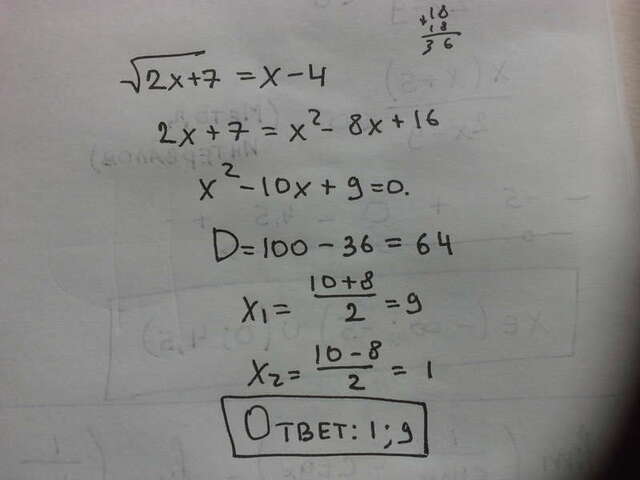 +18
18
36
√2x+7 = x-4
2x+7 = x² - 8x+16
x² - 10x + 9 = 0.
D = 100 - 36 = 64
x₁ = (10+8)/2 = 9
x₂ = (10-8)/2 = 1
ОТВЕТ: 1; 9